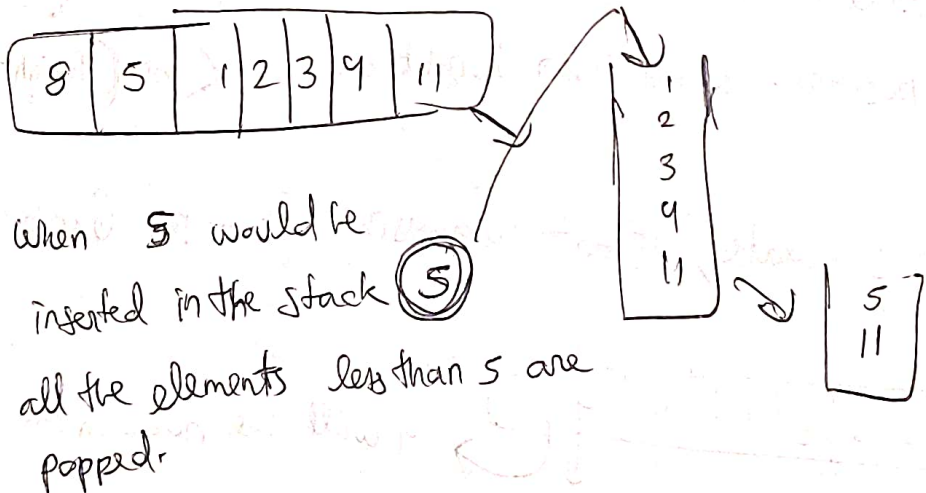 8 5 1 2 3 4 11
1
2
3
4
11
when 5 would be
inserted in the stack 5
all the elements less than 5 are
popped.
5
11